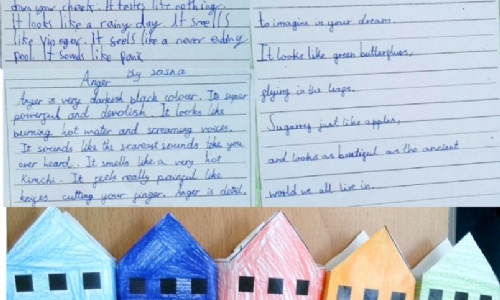 down your cheeks. It tastes like nothing.
It looks like a rainy day. It smells
like vinegar. It feels like a never ending
pool. It sounds like panic
Anger by
Anger is very darkish black colour. Its super
powerful and demolish. It looks like
burning hot water and screaming voices.
It sounds like the scarest sounds like you
ever heard. It smells like a very hot
Kimchi. It feels really painful like
knifes cutting your finger. Anger is
to imagine in your dream.
It looks like green butterflies,
flying in the
Sugarey just like apples,
and looks as beatiful as the ancient
world we all live in.